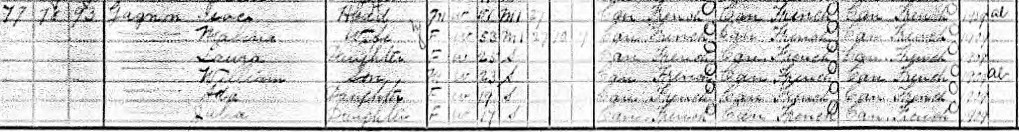 77 78 93 Gagnon Isaac Head M W 51 M1 27 Can French Can French Can French 1904 al
Malvina Wife F W 53 M1 27 12 Can French Can French Can French 1904
Laura Daughter F W 25 S Can French Can French Can French 1904
William Son M W 23 S Can French Can French Can French 1904 al
Ida Daughter F W 19 S Can French Can French Can French 1904
Daughter F W 17 S Can French Can French Can French 1904